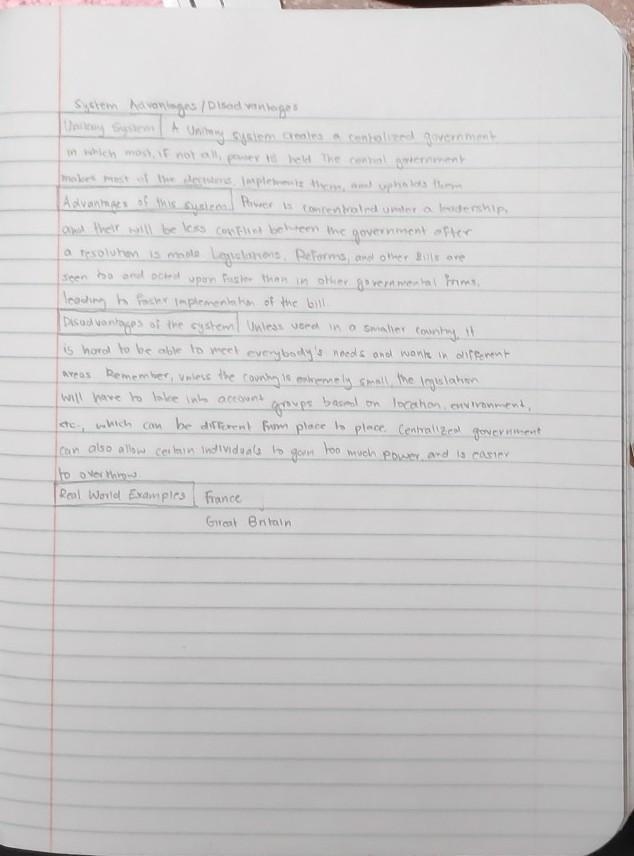 System Advantages/Disadvantages
Unitary System A Unitary system creates a centralized government
in which most, if not all, power is held. The central government
makes most of the decisions, implements them, and upholds them
Advantages of this system Power is concentrated under a leadership,
and their will be less conflict between the government after
a resolution is made. Legislations, Reforms, and other Bills are
seen too and acted upon faster than in other governmental forms,
leading to faster implementation of the bill.
Disadvantages of the system Unless used in a smaller country, it
is hard to be able to meet everybody's needs and wants in different
areas. Remember, unless the country is extremely small, the legislation
will have to take into account groups based on location, environment,
etc., which can be different from place to place. Centralized government
can also allow certain individuals to gain too much power and is easier
to overthrow.
Real World Examples France
Great Britain